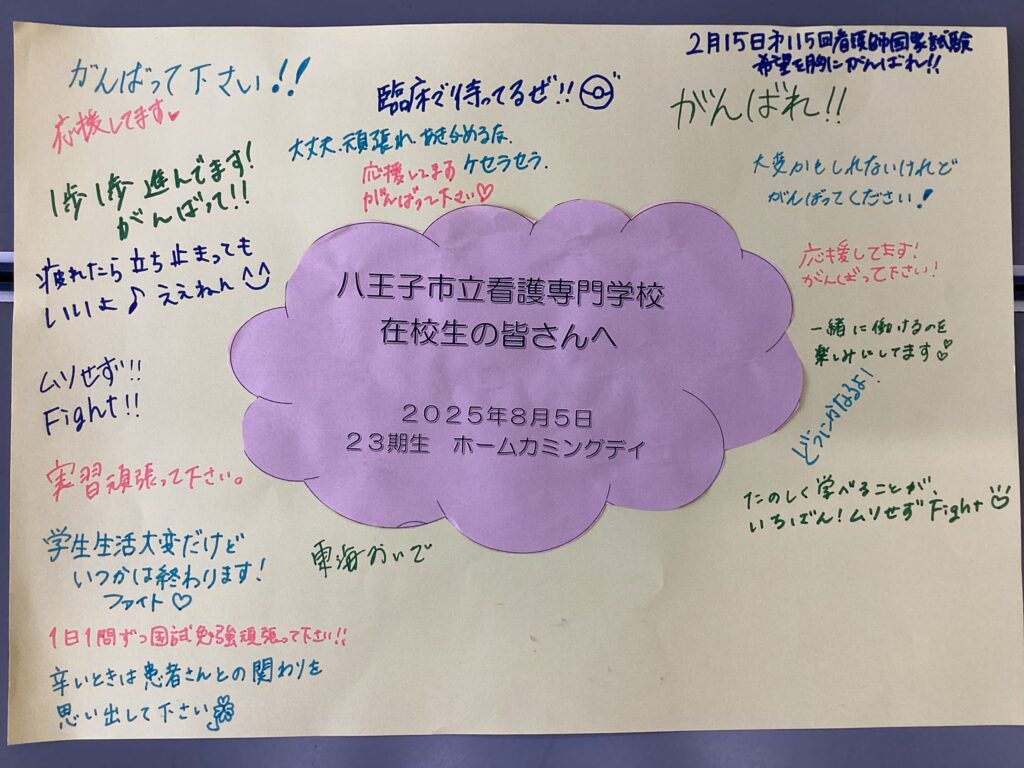 がんばって下さい!!
応援してます♥
1歩1歩進んでます!
がんばって!!
疲れたら立ち止まっても
いいよ♪ ええねん^^
ムリせず!!
Fight!!
実習頑張って下さい。
学生生活大変だけど
いつかは終わります!
ファイト♡
1日1問ずつ国試勉強頑張って下さい!!
辛いときは患者さんとの関わりを
思い出して下さい
臨床で待ってるぜ!!
大丈夫、頑張れ、あきらめるな、
ケセラセラ、
応援してます
がんばって下さい♡
八王子市立看護専門学校
在校生の皆さんへ
2025年8月5日
23期生 ホームカミングデイ
東海おいで
2月15日第115回看護師国家試験
希望を胸にがんばれ!!
がんばれ!!
大変かもしれないけれど
がんばってください!
応援してます!
がんばって下さい!
一緒に働けるのを
楽しみにしてます♡
どうにかなるよ!
たのしく学べることが、
いちばん!ムリせずFight